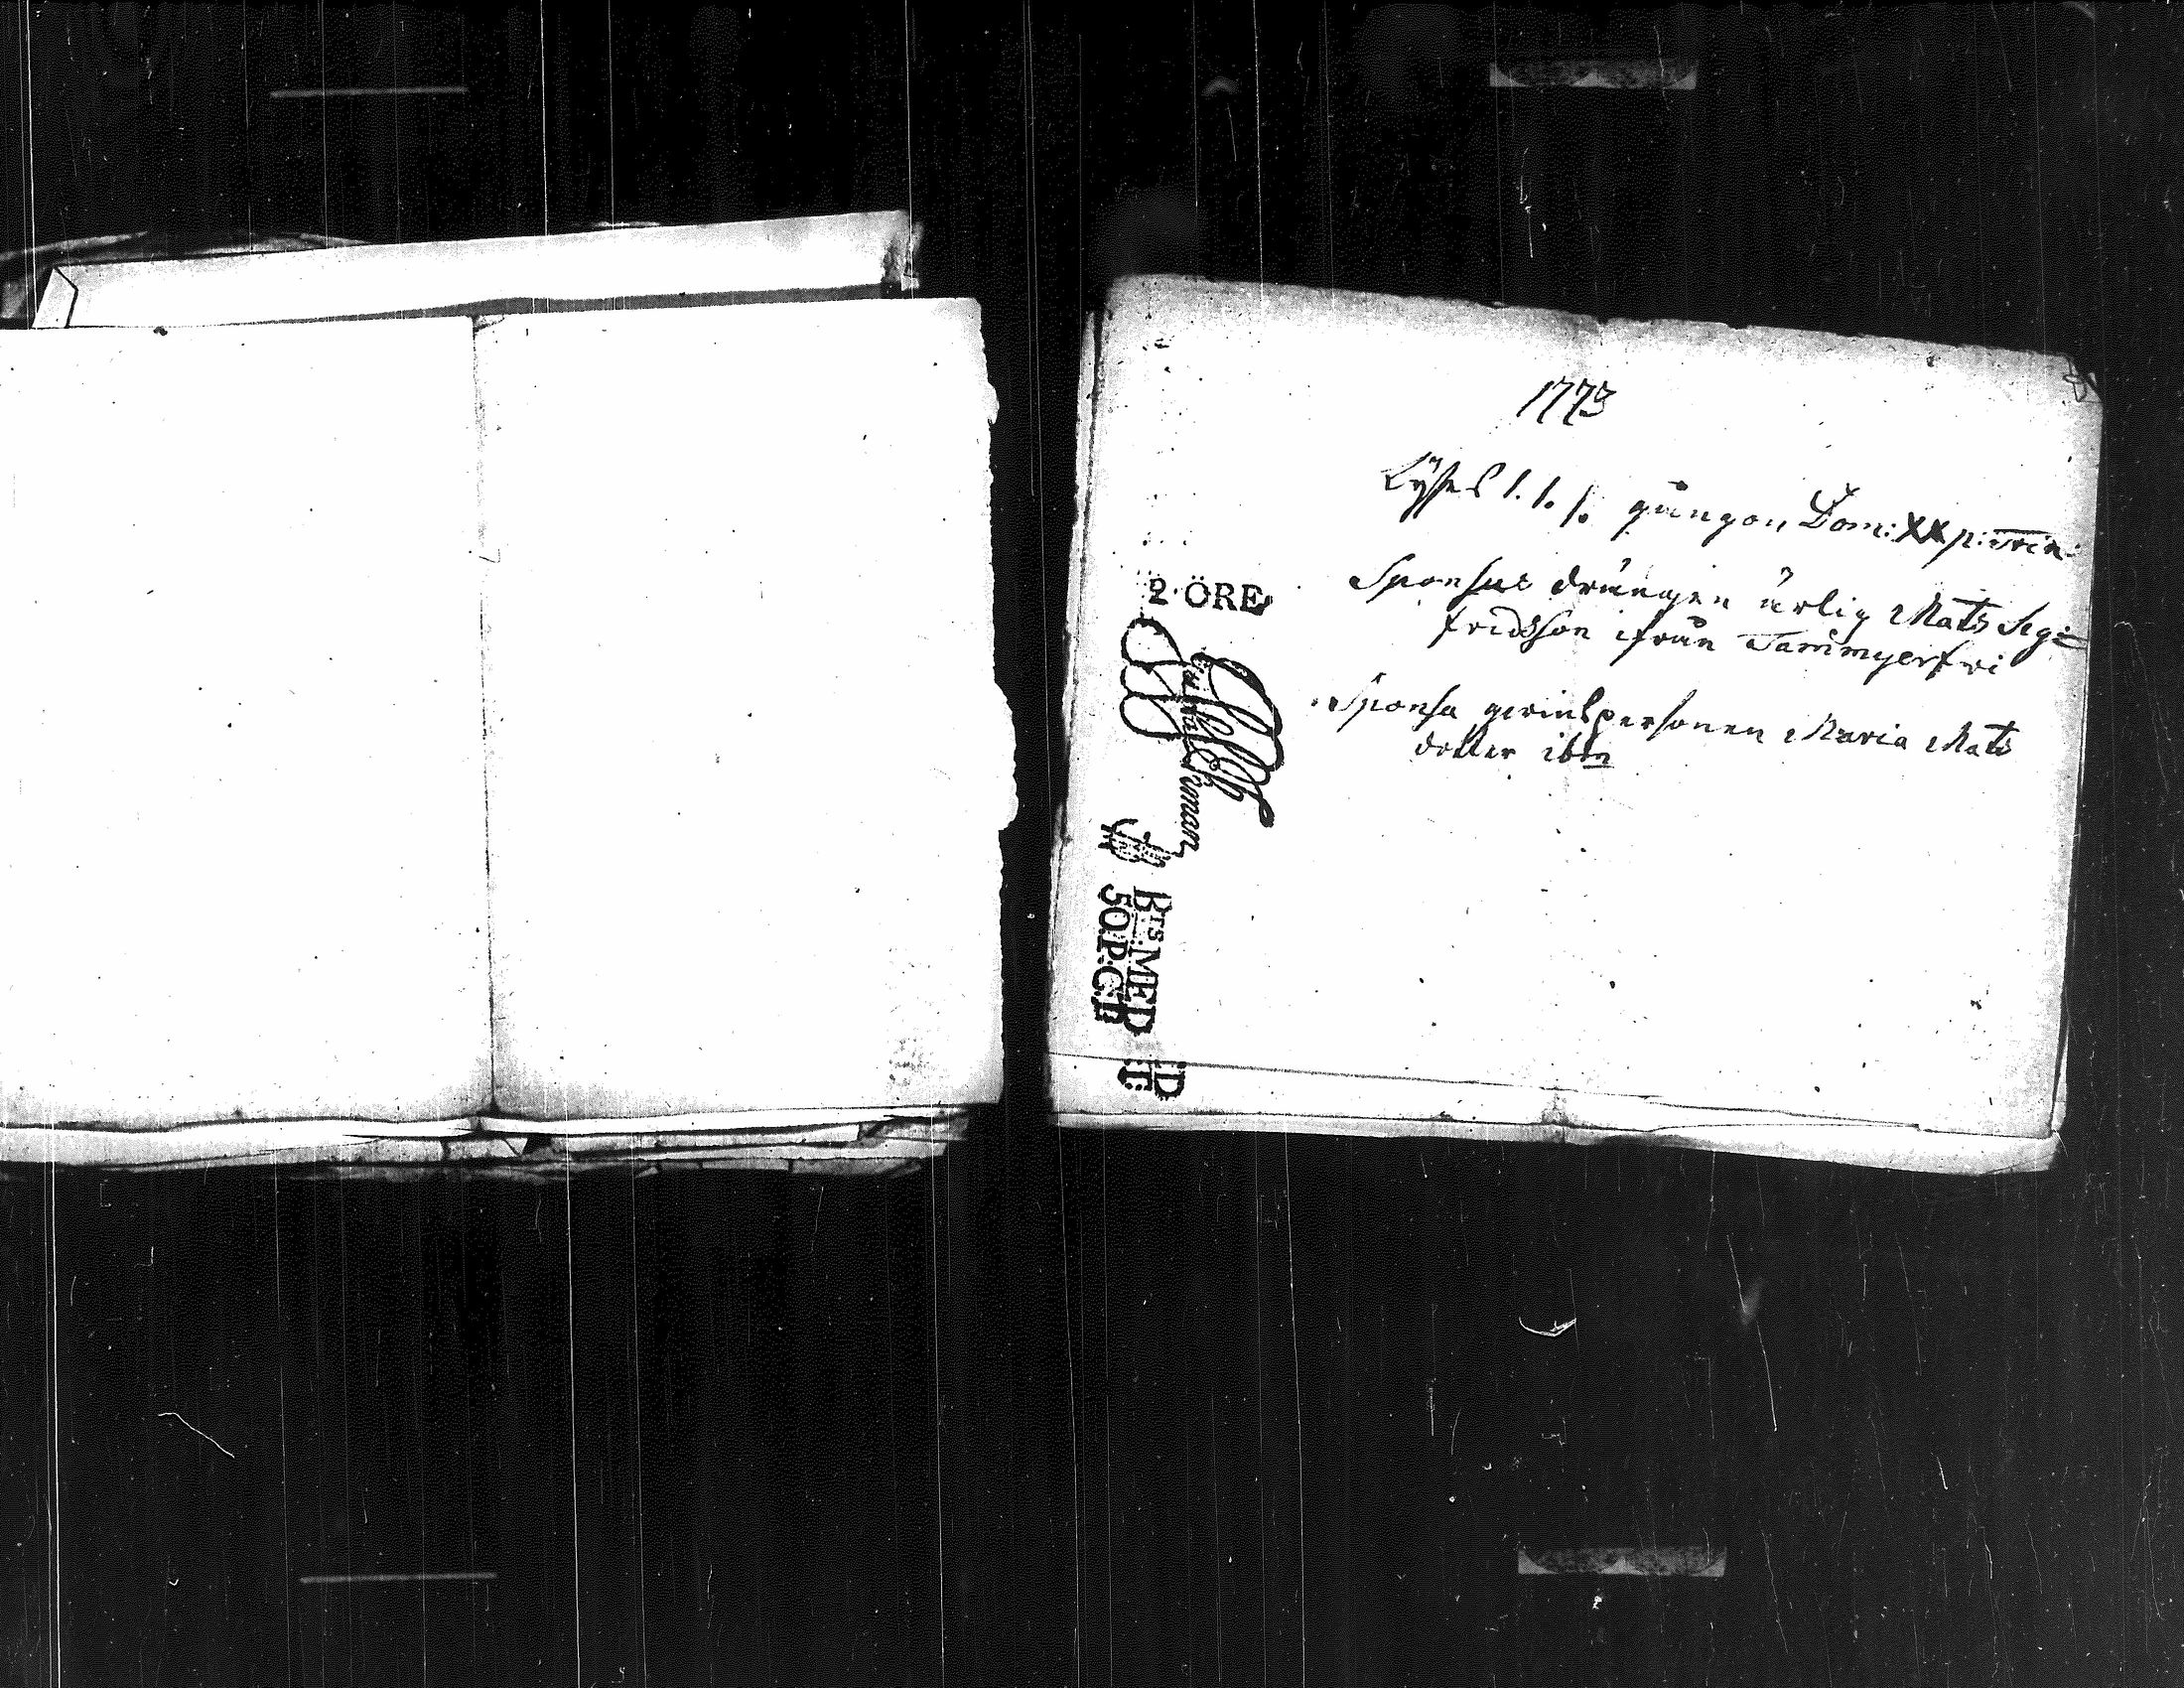 1773
Lyses 1. 1. 1. gången Dom: XX p: Trin:
Sponsus drängen ärlig Mats Seg=
fridsson ifrån Tammyerfwi
Sponsa qwinspersonen Maria Mats
dotter ibm
2 ÖRE
50.P.C:T
B:TS MED
ED